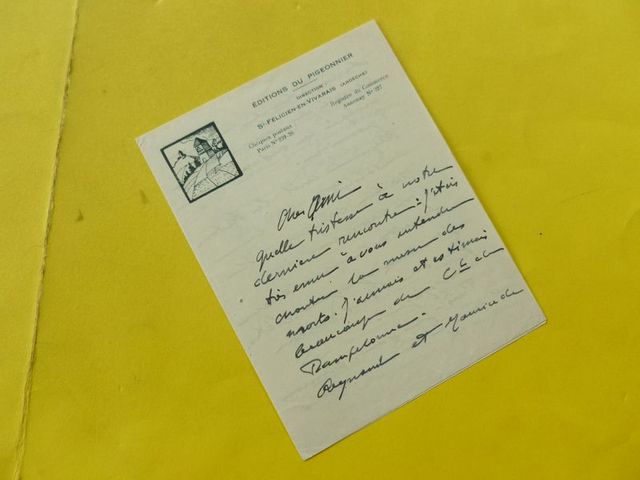 ÉDITIONS DU PIGEONNIER
DIRECTION :
St-FÉLICIEN-EN-VIVARAIS (ARDÈCHE)
Chèques postaux
Paris N° 759-26
Registre du Commerce
Annonay N° 327
Cher Ami
quelle tristesse à notre
dernière rencontre : j'étais
très ému à vous entendre
chanter la messe des
morts. J'aimais et estimais
beaucoup de
Pampelonne.
Reynaud et Maurice de